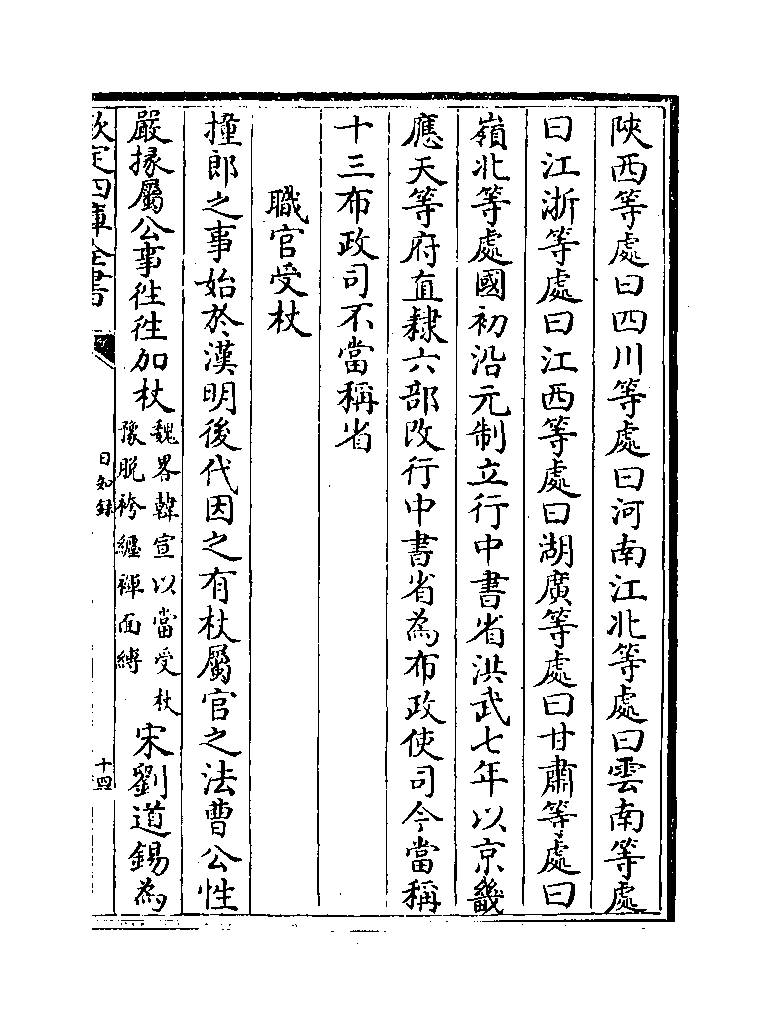 陜西等處曰四川等處曰河南江北等處曰雲南等處
曰江浙等處曰江西等處曰湖廣等處曰甘肅等處曰
嶺北等處國初沿元制立行中書省洪武七年以京畿
應天等府直隸六部改行中書省為布政使司今當稱
十三布政司不當稱省
職官受杖
撞郎之事始於漢明後代因之有杖屬官之法曹公性
嚴掾屬公事徃徃加杖魏畧韓宣以當受杖豫脫袴纏褌面縛宋劉道錫為
欽定四庫全書
日知録
十四